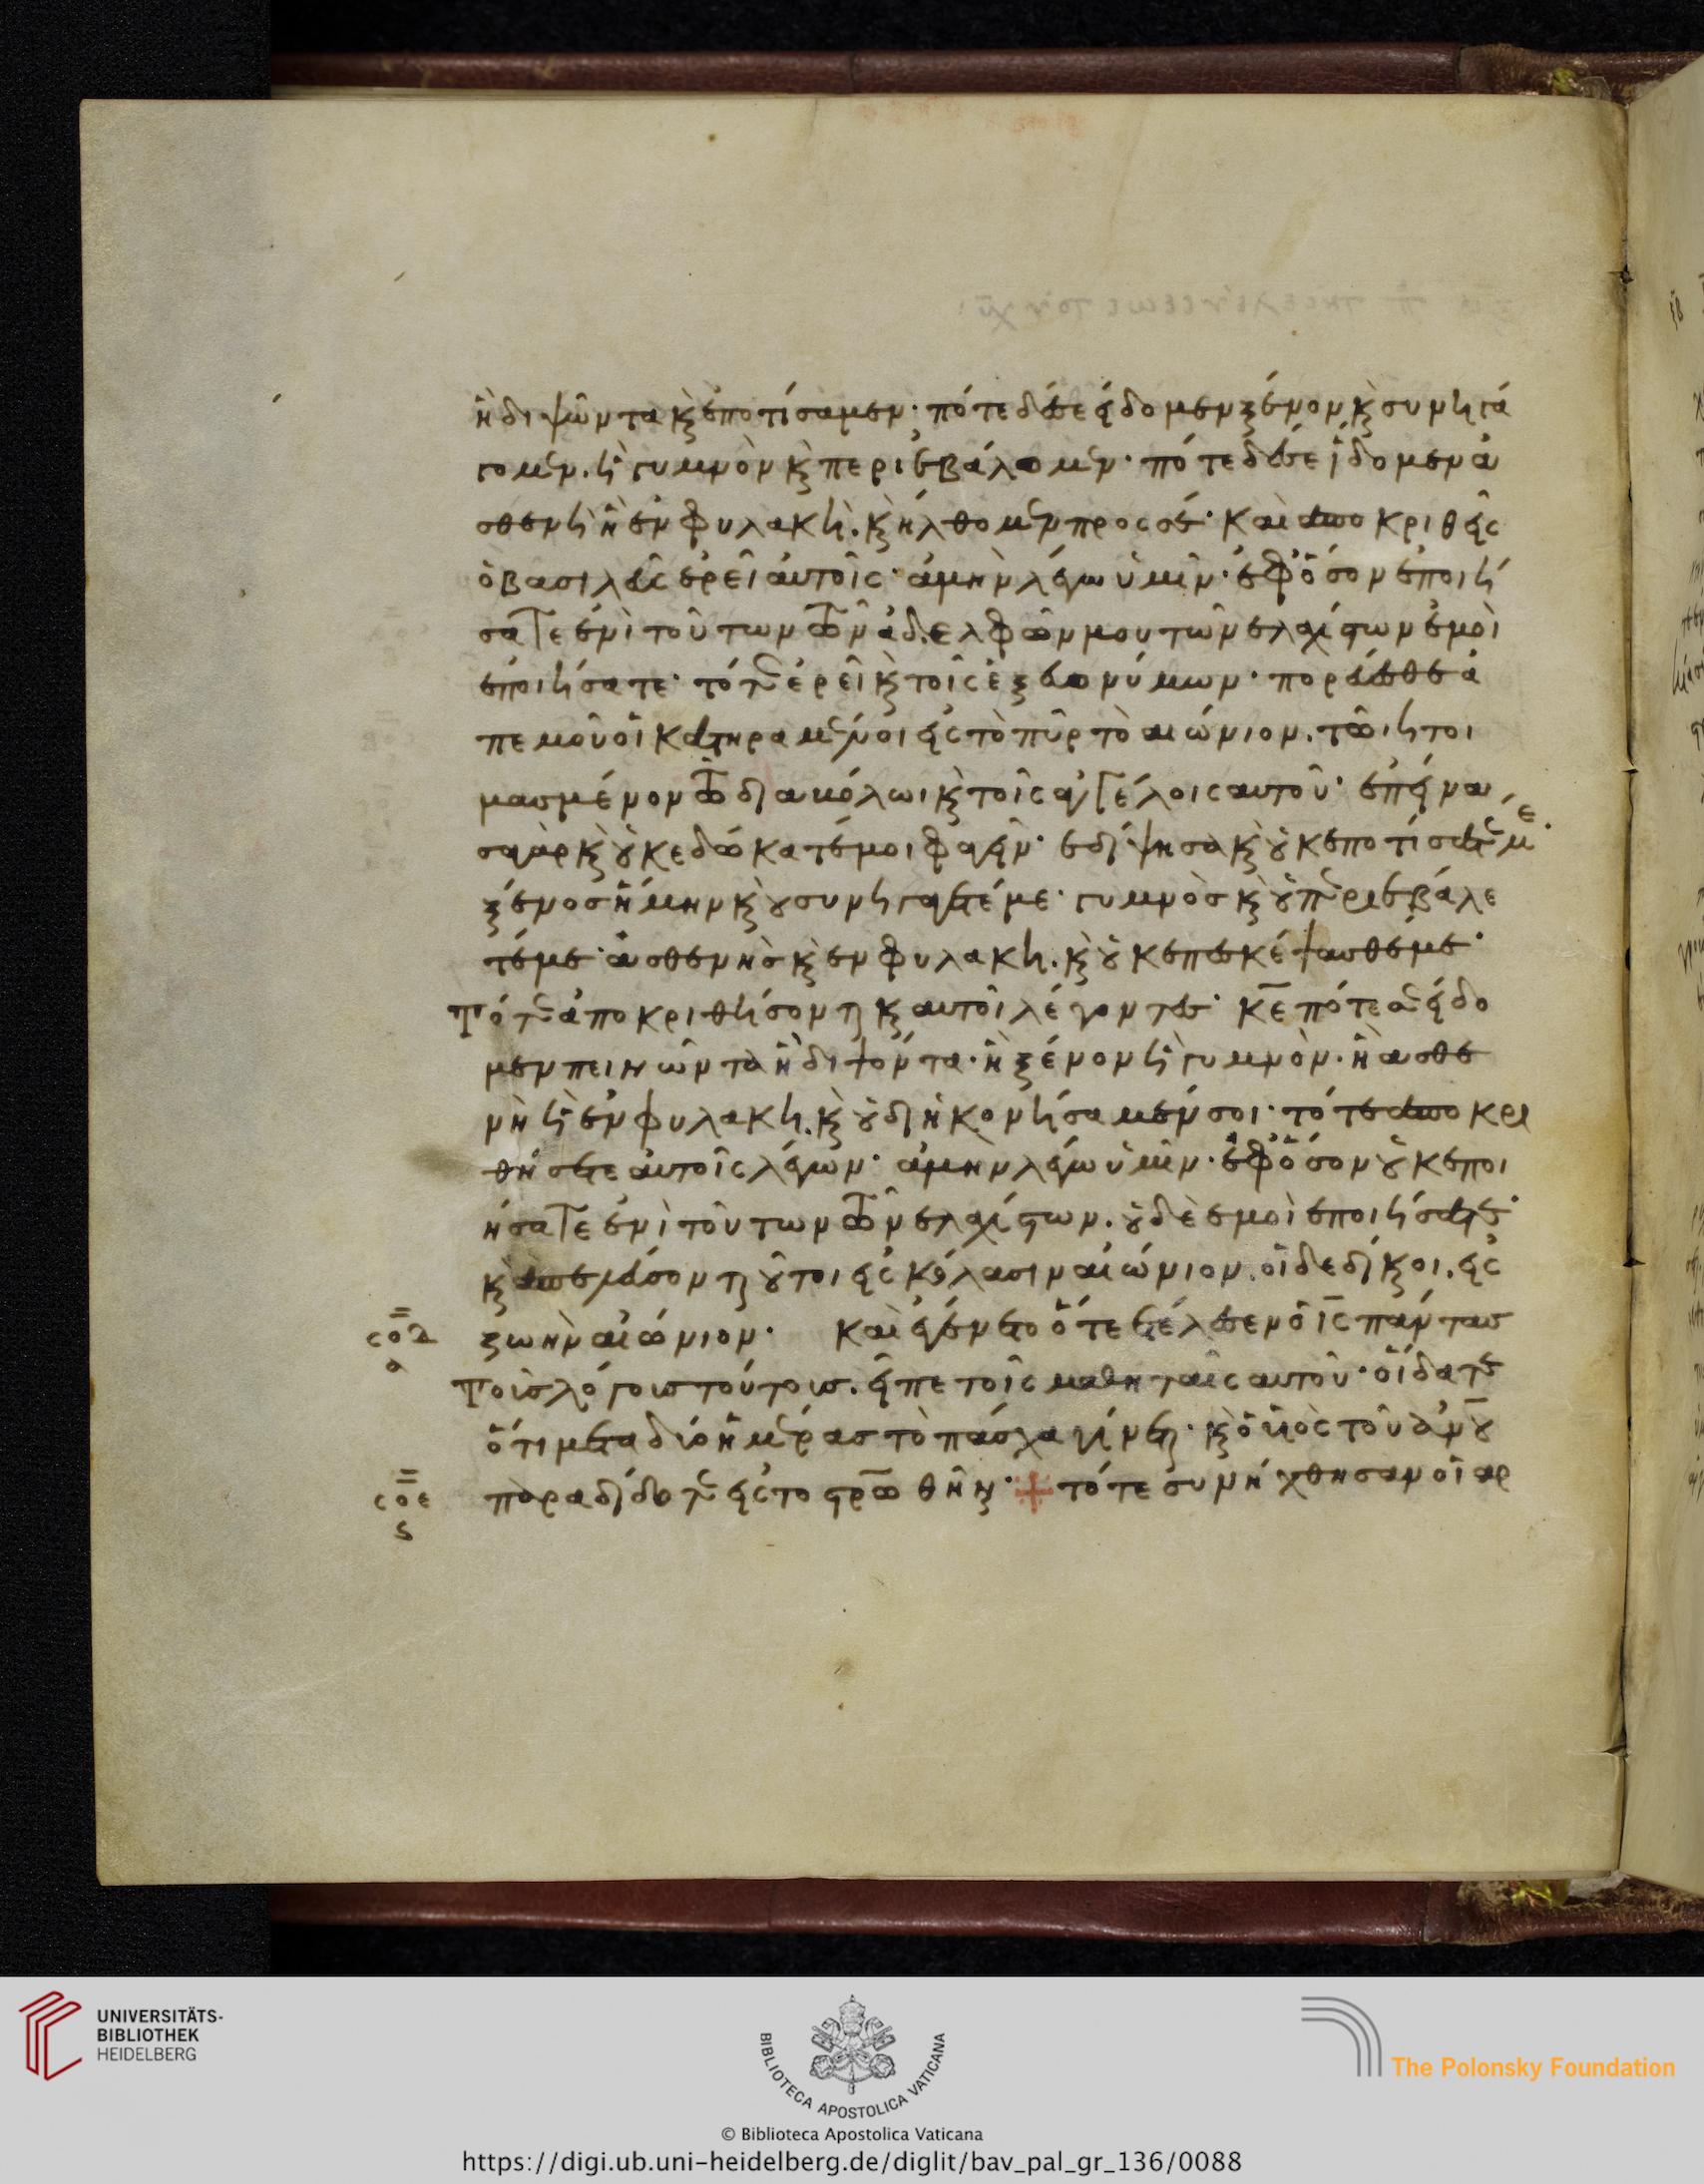 ἢ διψῶντα κ(αὶ) ἐποτίσαμεν· πότε δέ σε εἴδομεν ξένον κ(αὶ) συνηγά
γομ(εν). ἢ γυμνὸν κ(αὶ) περιεβάλομ(εν)· πότε δέ σε εἴδομεν ἀ
σθενῆ ἢ ἐν φυλακῆ. κ(αὶ) ἤλθομ(εν) προς σέ· και ἀποκριθεὶς
ὁ βασιλεῦς ἐρεῖ ἀυτοῖς· ἀμὴν λέγω ὑμῖν· ἐφ ὅσον ἐποιή
σατε ἑνὶ τοῦτων τῶν ἀδελφῶν μου τῶν ἐλαχίστων ἐμοὶ
ἐποιήσατε· τότε ἐρεῖ κ(αὶ) τοῖς ἐξ ἐυωνύμων· πορέυεσθε ἀ
π εμοῦ οἱ κατηραμένοι εἰς τὸ πῦρ τὸ αιώνιον. τῶ ιητοι
μασμένον τῶ διαβόλωι κ(αὶ) τοῖς αγγέλοις αυτοῦ· ἐπείνα
σα γὰρ κ(αὶ) οὐκ εδώκατέ μοι φαγεῖν· εδίψησα κ(αὶ) οὐκ εποτίσατέ με·
ξένος ἤμην κ(αὶ) ου συνηγάγετέ με· γυμνὸς κ(αὶ) οὐ περιεβάλε
τέ με· ἀσθενὴς κ(αὶ) ἐν φυλακῆ. κ(αὶ) οὐκ επεσκέψασθέ με·
Τότε ἀποκριθήσονται κ(αὶ) αυτοῖ λέγοντες· κε πότε σε εἴδο
μεν πεινῶντα ἢ διψόντα· ἢ ξένον ἢ γυμνὸν. ἢ ασθε
νὴ ἢ ἐν φυλακῆ. κ(αὶ) οὐ διηκονήσαμέν σοι· τότε ἀποκρι
θήσεται ἀυτοῖς λέγων· ἀμην λέγω ὑμῖν· ἐφ ὅσον οὐκ εποι
ήσατε ἑνὶ τοῦτων τῶν ἐλαχίστων. οὐδὲ ἐμοὶ ἐποιήσατε·
κ(αὶ) απελεύσονται οὗτοι εἰς κόλασιν αἰώνιον. οἱ δε δίκαιοι. εἰς
σοδ ζωὴν αἰώνιον· Και ἐγένετο ὅτε ἐτέλεσεν ὁ ις πάντας
α
Τοὺς λόγους τούτους. εἶπε τοῖς μαθηταῖς αυτοῦ· οἴδατε
ὅτι μετα δύο ἡμέρας τὸ πάσχα γίνεται· κ(αὶ) ὁ υἱὸς τοῦ ανου
σοε παραδίδοται εἰς το στρωθῆναι· + τότε συνήχθησαν οἱ αρ
ς
UNIVERSITÄTS-
BIBLIOTHEK
HEIDELBERG
BIBLIOTECA APOSTOLICA VATICANA
The Polonsky Foundation
© Biblioteca Apostolica Vaticana
https://digi.ub.uni-heidelberg.de/diglit/bav_pal_gr_136/0088